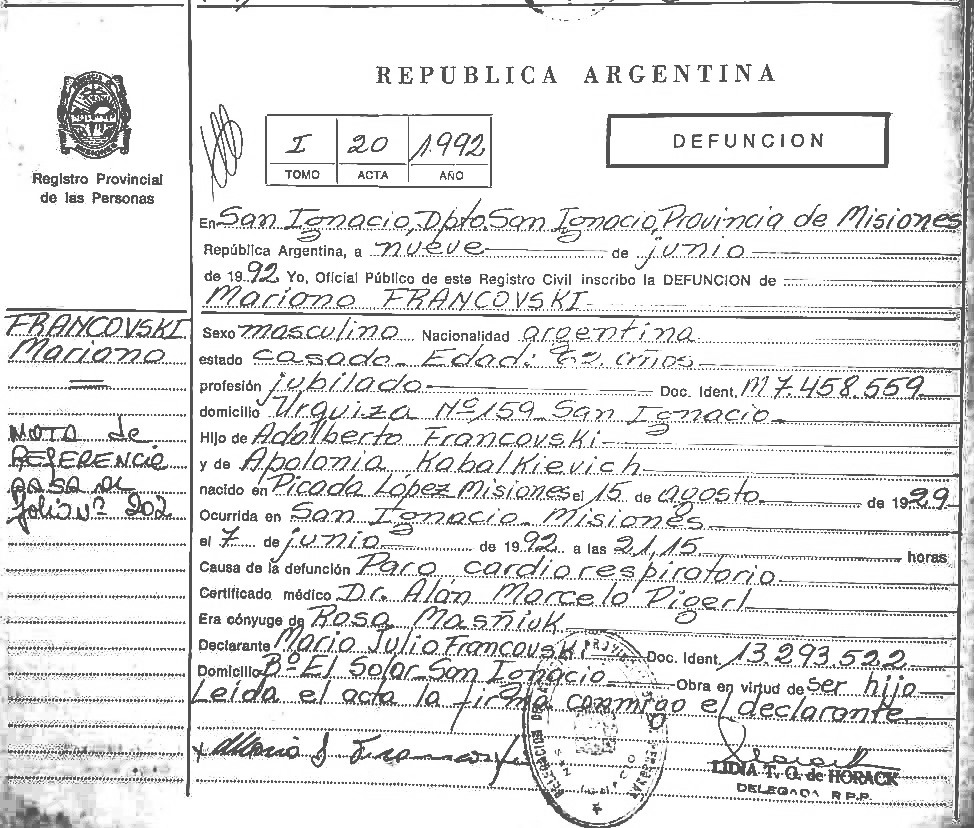 REPUBLICA ARGENTINA
Registro Provincial
de las Personas
I 20 1992
TOMO ACTA AÑO
DEFUNCION
En San Ignacio, Dpto. San Ignacio, Provincia de Misiones
República Argentina, a nueve de junio
de 1992 Yo, Oficial Público de este Registro Civil inscribo la DEFUNCION de
Mariano FRANCOVSKI
FRANCOVSKI
Mariano
NOTA de
REFERENCIA
PASA AL
folio Nº 202
Sexo masculino Nacionalidad argentina
estado casado Edad: años
profesión jubilado Doc. Ident. M 7.458.559
domicilio Urquiza Nº 159 San Ignacio
Hijo de Adalberto Francovski
y de Apolonia Kabalkievich
nacido en Picada López Misiones el 15 de agosto de 1929
Ocurrida en San Ignacio Misiones
el 7 de junio de 1992 a las 21,15 horas
Causa de la defunción Paro cardiorespiratorio
Certificado médico Dr. Alán Marcelo Pigerl
Era cónyuge de Rosa Masñiuk
Declarante Mario Julio Francovski Doc. Ident. 13.293.522
Domicilio Bº El Solar San Ignacio Obra en virtud de ser hijo
Leída el acta la firma conmigo el declarante
LIDIA T. G. de HORACK
DELEGADA R.P.P.